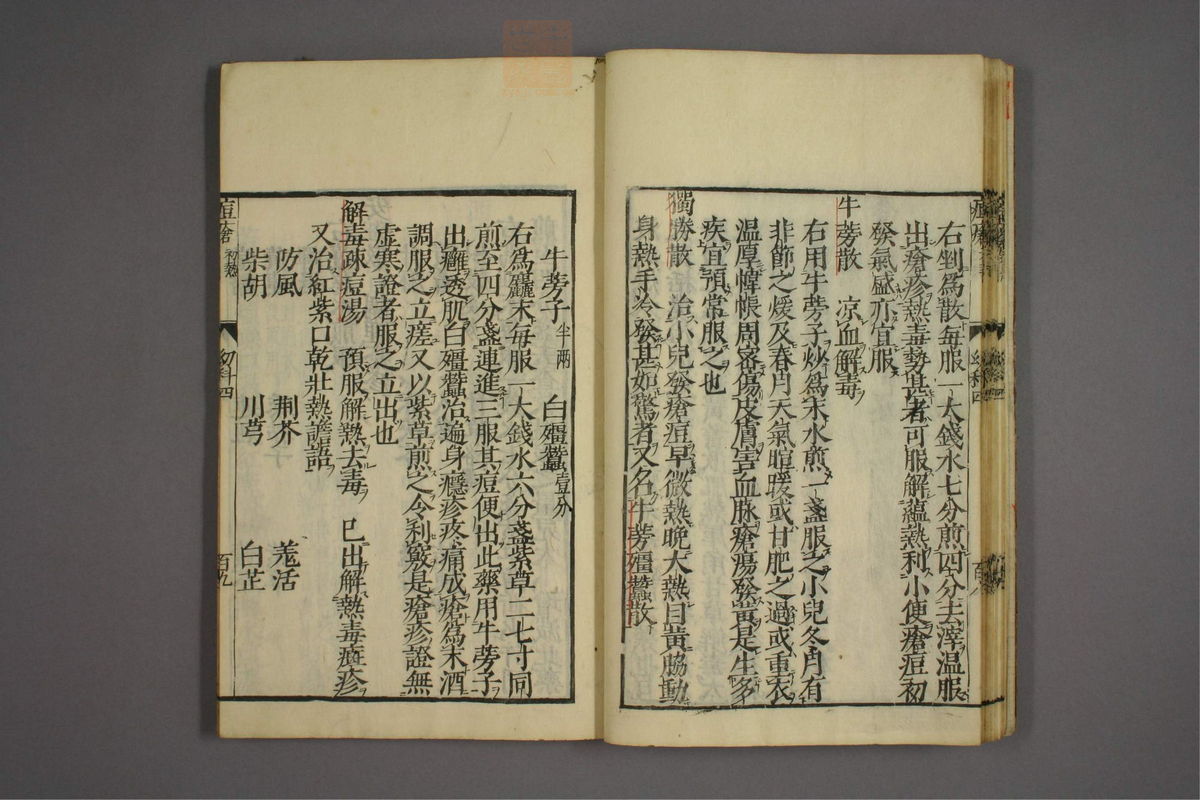 右剉爲散每服一大錢水七分煎四分去滓温服
出瘡疹熱毒勢甚者可服解蘊熱利小便瘡痘初
發氣盛亦宜服
牛蒡散　凉血解毒
右用牛蒡子炒爲末水煎一盞服之小兒冬月有
非節之煖及春月天氣暄暖或甘肥之過或重衣
温厚幃帳周密傷皮膚害血脉瘡瘍發黃是生多
疾宜預常服之也
獨勝散　治小兒發瘡痘早微熱晚大熱目黃脇動
身熱手冷發甚如驚者又名牛蒡殭蠶散
牛蒡子半兩　白殭蠶壹分
右爲麤末每服一大錢水六分盞紫草二七寸同
煎至四分盞連進三服其痘便出此藥用牛蒡子
出癰透肌白殭蠶治遍身癮疹疼痛成瘡爲末酒
調服之立瘥又以紫草煎之令利竅是瘡疹證無
虚寒證者服之立出也
解毒疎痘湯　預服解熱去毒　已出解熱毒癍疹
又治紅紫口乾壯熱譫語
防風　荆芥　羗活
柴胡　川芎　白芷
痘瘡 初熱　幼科四　百九